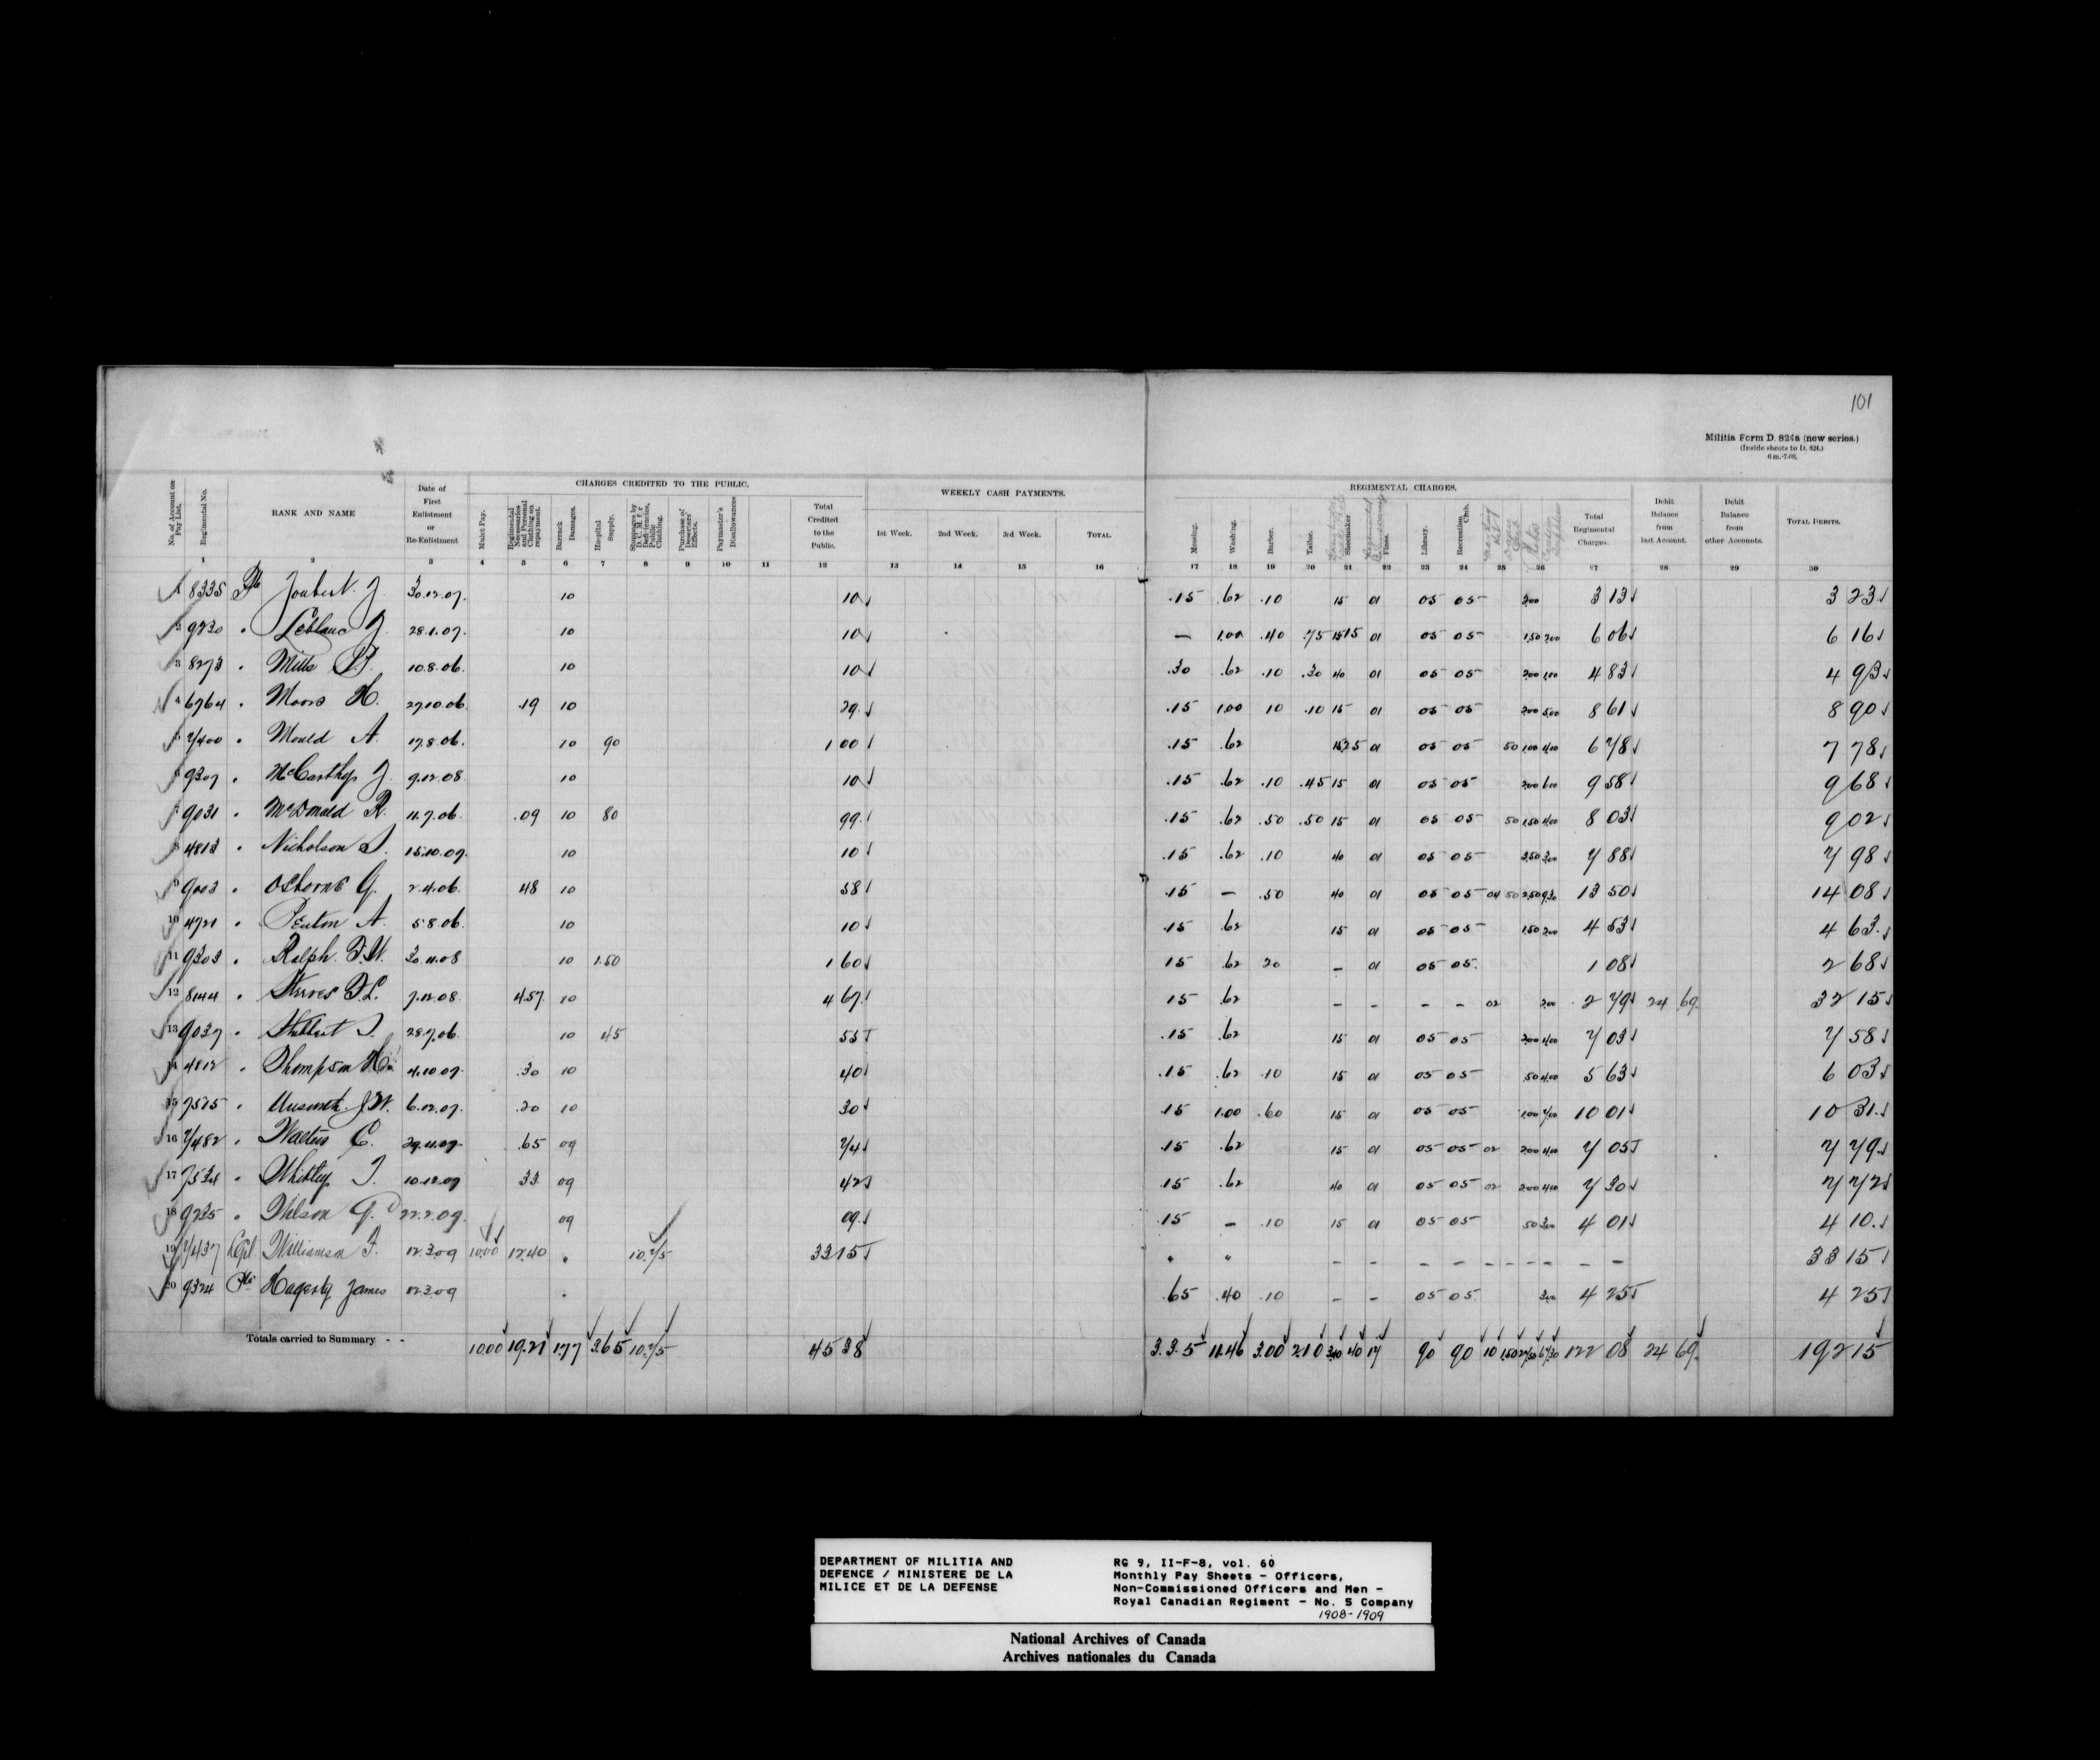 101
Militia Form D. 824a (new series.)
(Inside sheets to D. 824.)
6 m.-7-08.
No. of Account on Pay List. Regimental No. RANK AND NAME Date of First Enlistment or Re-Enlistment CHARGES CREDITED TO THE PUBLIC. WEEKLY CASH PAYMENTS. REGIMENTAL CHARGES. Debit Balance from last Account. Debit Balance from other Accounts. TOTAL DEBITS.
Mulct Pay. Regimental Necessaries and Personal Clothing on repayment. Barrack Damages. Hospital Supply. Stoppages by D. C. M. f. r Deficiencies, Public Clothing. Purchase of Deserters' Effects. Paymaster's Disallowances Total Credited to the Public. 1st Week. 2nd Week. 3rd Week. TOTAL. Messing. Washing. Barber. Tailor. Shoemaker Fines. Library. Recreation Club. Total Regimental Charges.
1 2 3 4 5 6 7 8 9 10 11 12 13 14 15 16 17 18 19 20 21 22 23 24 25 26 27 28 29 30
1 8335 Pte Joubert J. 30.12.07. 10 10 .15 .62 .10 15 01 05 05 2.00 3 13 3 23
2 9230 " Leblanc J. 28.1.07. 10 10 — 1.00 .40 .75 15 15 01 05 05 1.50 2.00 6 06 6 16
3 8273 " Mills 10.8.06. 10 10 .30 .62 .10 .30 40 01 05 05 2.00 1.00 4 83 4 93
4 6764 " Moors H. 27.10.06. .19 10 29 .15 1.00 10 .10 15 01 05 05 2.00 5.00 8 61 8 90
5 7400 " Mould A. 17.8.06. 10 90 1 00 .15 .62 15 25 01 05 05 50 1.00 4.00 6 78 7 78
6 9307 " McCarthy J. 9.12.08. 10 10 .15 .62 .10 .45 15 01 05 05 2.00 6.00 9 58 9 68
7 9031 " McDonald R. 11.7.06. .09 10 80 99 .15 .62 .50 .50 15 01 05 05 50 1.50 4.00 8 03 9 02
8 4813 " Nicholson S. 15.10.07. 10 10 .15 .62 .10 40 01 05 05 3.50 3.00 7 88 7 98
9 9003 " Osborne G. 2.4.06. 48 10 58 .15 — .50 40 01 05 05 04 50 2.50 9.30 13 50 14 08
10 4721 " Penton A. 5.8.06. 10 10 .15 .62 15 01 05 05 1.50 2.00 4 53 4 63
11 9303 " Ralph F.W. 30.11.08 10 1.50 1 60 15 .62 20 — 01 05 05 1 08 2 68
12 8144 " Steeves F.L. 7.12.08. 4.57 10 4 67 15 .62 — — — — 02 2.00 2 79 24 69 32 15
13 9037 " 28.7.06. 10 45 55 .15 .62 15 01 05 05 2.00 4.00 7 03 7 58
14 4812 " Thompson Wm 4.10.07. .30 10 40 .15 .62 .10 15 01 05 05 .50 4.00 5 63 6 03
15 7515 " Unsworth J.W. 6.12.07. .20 10 30 .15 1.00 .60 15 01 05 05 1.00 7.00 10 01 10 31
16 7482 " Walters C. 29.11.07. .65 09 74 .15 .62 15 01 05 05 02 2.00 4.00 7 05 7 79
17 7534 " Whitley T. 10.12.07 33 09 42 .15 .62 40 01 05 05 02 2.00 4.00 7 30 7 72
18 9235 " Wilson G. 22.2.09. 09 09 .15 — .10 15 01 05 05 50 3.00 4 01 4 10
19 7437 Cpl Williamson F. 12.3.09 10.00 12.40 " 10.75 33 15 " " — — — — — — — — — — 33 15
20 9324 Pte Hagerty James 12.3.09 .65 .40 .10 — — 05 05 3.00 4 25 4 25
Totals carried to Summary - - 10.00 19.21 1.77 3.65 10.75 45 38 3.35 11.46 3.00 2.10 3.40 40 17 90 90 10 1.50 27.50 67.30 122 08 24 69 192 15
DEPARTMENT OF MILITIA AND
DEFENCE / MINISTERE DE LA
MILICE ET DE LA DEFENSE
RG 9, II-F-8, vol. 60
Monthly Pay Sheets - Officers,
Non-Commissioned Officers and Men -
Royal Canadian Regiment - No. 5 Company
1908-1909
National Archives of Canada
Archives nationales du Canada